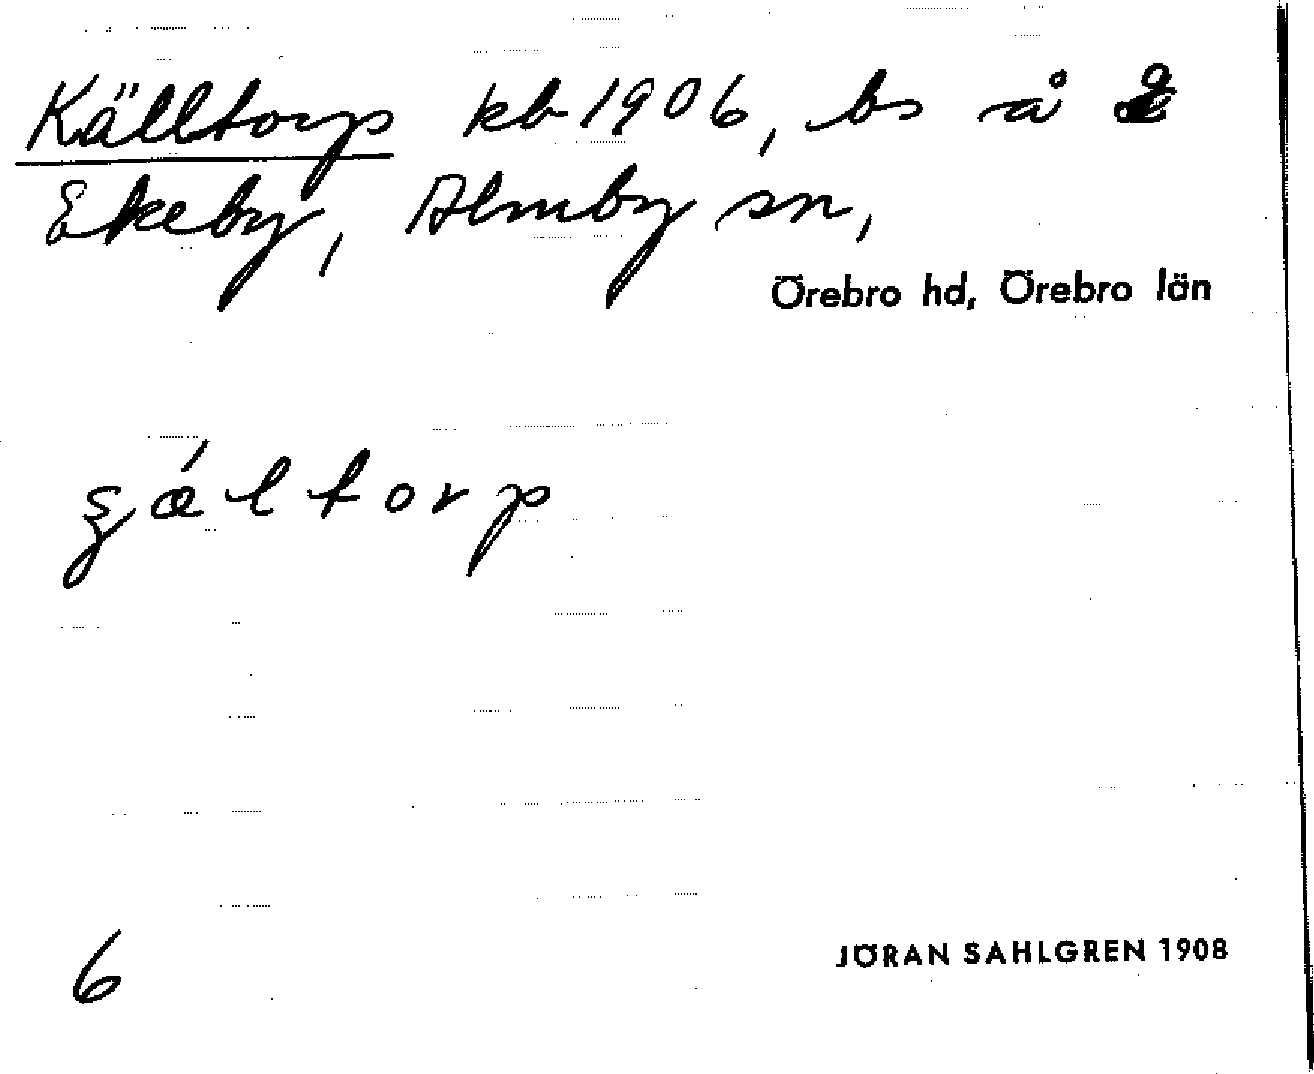 Källtorp kb 1906, bs å
Ekeby, Almby sn,
Örebro hd, Örebro län
ʂǽltorp
6
JÖRAN SAHLGREN 1908